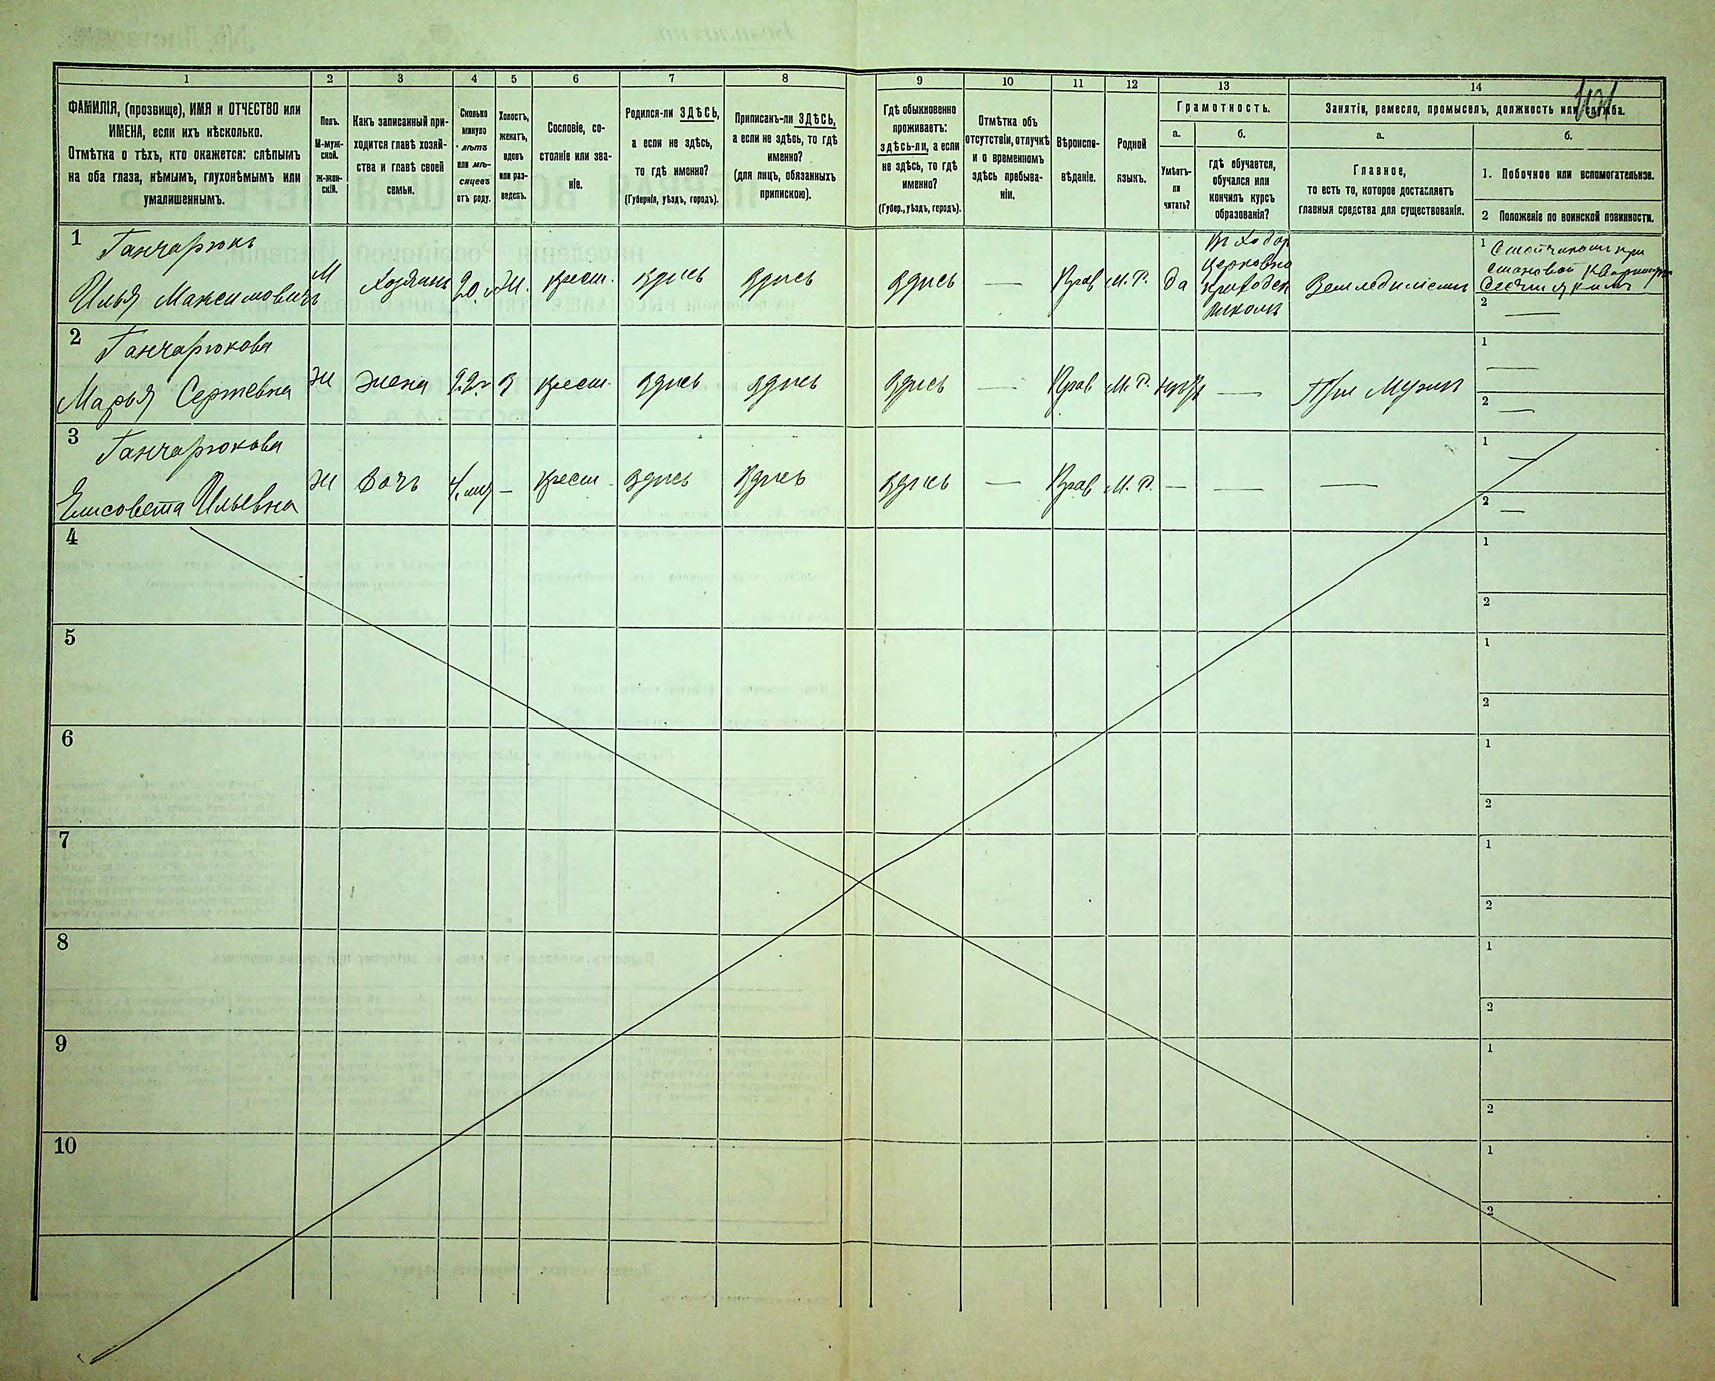 1 2 3 4 5 6 7 8 9 10 11 12 13 14
ФАМИЛІЯ, (прозвище), ИМЯ и ОТЧЕСТВО или
ИМЕНА, если ихъ нѣсколько.
Отмѣтка о тѣхъ, кто окажется: слѣпымъ
на оба глаза, нѣмымъ, глухонѣмымъ или
умалишеннымъ.
Полъ.
М-муж-
ской.
ж-жен-
скій.
Какъ записанный при-
ходится главѣ хозяй-
ства и главѣ своей
семьи.
Сколько
минуло
лѣтъ
или мѣ-
сяцевъ
отъ роду.
Холостъ,
женатъ,
вдовъ
или раз-
веденъ.
Сословіе, со-
стояніе или зва-
ніе.
Родился-ли ЗДѢСЬ,
а если не здѣсь,
то гдѣ именно?
(Губернія, уѣздъ, городъ).
Приписанъ-ли ЗДѢСЬ,
а если не здѣсь, то гдѣ
именно?
(для лицъ, обязанныхъ
припискою).
Гдѣ обыкновенно
проживаетъ:
здѣсь-ли, а если
не здѣсь, то гдѣ
именно?
(Губер., уѣздъ, городъ).
Отмѣтка объ
отсутствіи, отлучкѣ
и о временномъ
здѣсь пребыва-
ніи.
Вѣроиспо-
вѣданіе.
Родной
языкъ.
Грамотность.
а.
Умѣетъ-
ли
читать?
б.
гдѣ обучается,
обучался или
кончилъ курсъ
образованія?
Занятія, ремесло, промыселъ, должность или служба.
а.
Главное,
то есть то, которое доставляетъ
главныя средства для существованія.
б.
1. Побочное или вспомогательное.
2 Положеніе по воинской повинности.
1 Ганчарюкъ
Илья Максимовичъ
М Хозяинъ 20 Ж. крест. здѣсь здѣсь здѣсь — Прав М. Р. да
церковно
приходск
школѣ
Земледѣлiемъ
1
становой квартирѣ
2 —
2 Ганчарюкова
Марья Сергѣевна
Ж жена 22 З крест. здѣсь здѣсь здѣсь — Прав М. Р. — При Мужѣ
1 —
2 —
3 Ганчарюкова
Елисовета Ильевна
Ж Дочь 4. крест. здѣсь здѣсь здѣсь — Прав М. Р. — — —
1 —
2 —
4 1
2
5 1
2
6 1
2
7 1
2
8 1
2
9 1
2
10 1
2